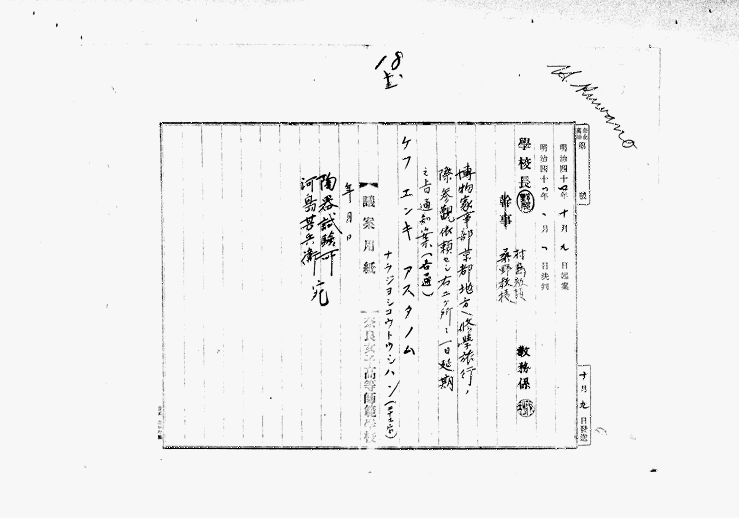 18
H. Kuwano
號
明治四十四年十月九日起案
明治四十 年 月 日決判
學校長
幹事
村島教授
桑野教授
教務係
十月九日發送
博物家事部京都地方ヘ修學旅行ノ
際參觀依頼セシ右二ケ所ニ一日延期
之旨通知案(各通)
ケフエンキ アスタノム
ナラジヨシコウトウシハン
議案用紙
奈良女子高等師範學校
年 月 日
陶器試驗所
河島甚兵衛 宛